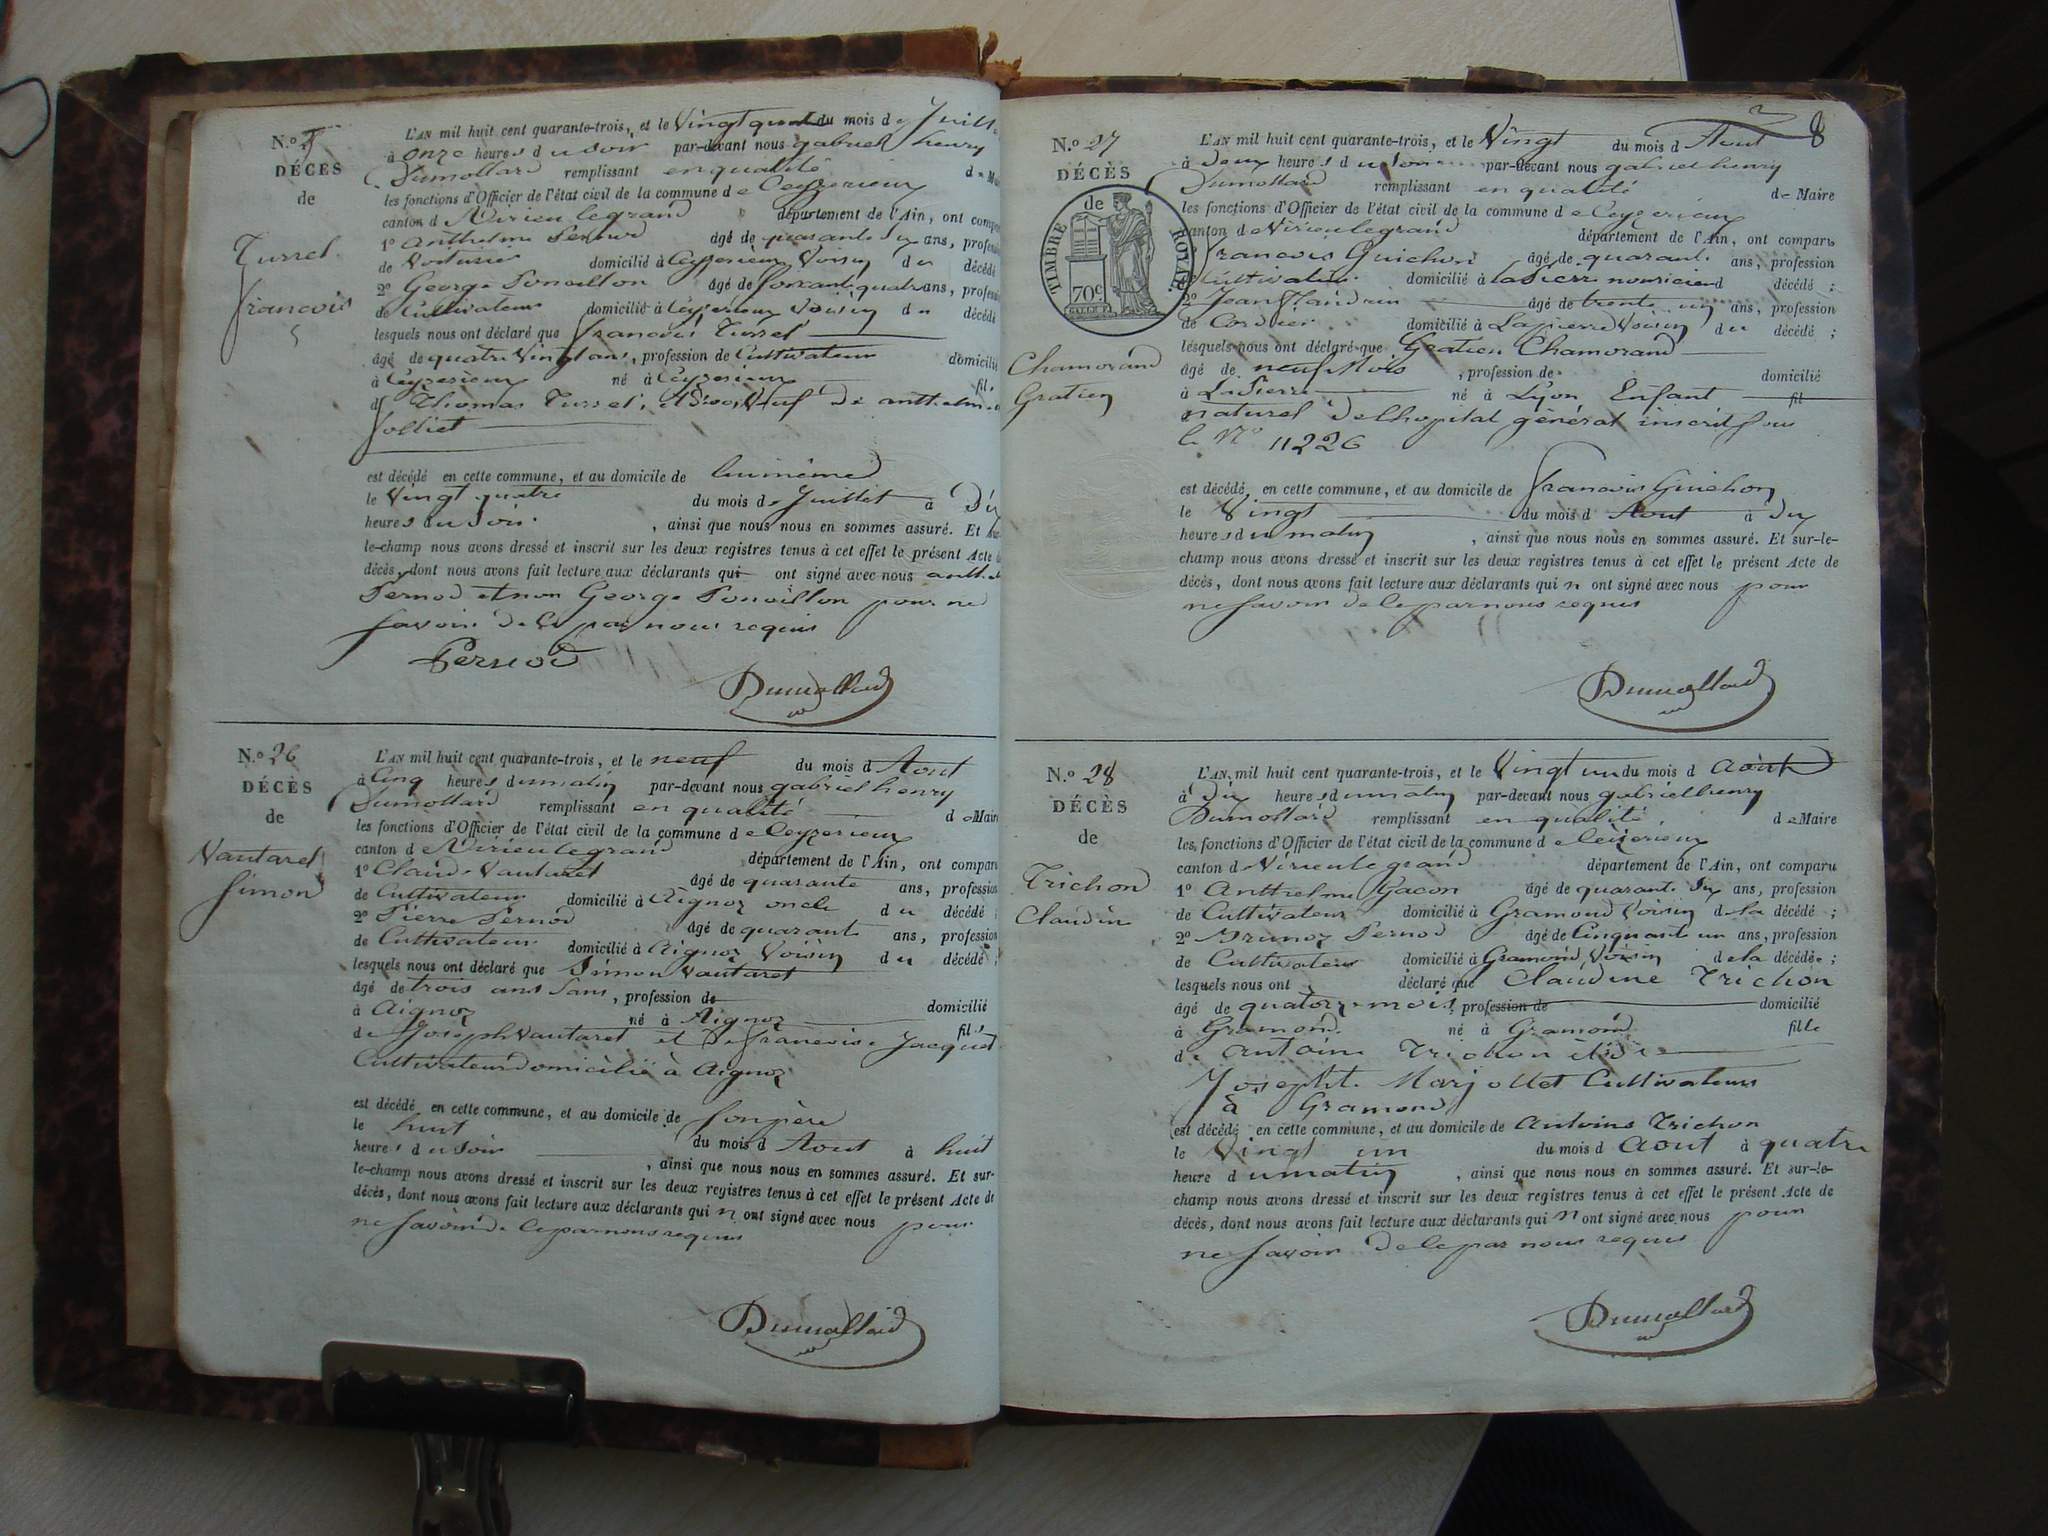 N.o
DÉCÈS
de
Turrel
francois
L'AN mil huit cent quarante-trois, et le Vingt quatre du mois de Juill
à onze heures du soir par-devant nous gabriel henry
Dumollard remplissant en qualité de Mai
les fonctions d'Officier de l'état civil de la commune de Ceyzerieux
canton de Virieu le grand département de l'Ain, ont compa
1o anthelme Pernod âgé de quarante six ans, profess
de Voiturier domicilié à Ceyzerieux Voisin du décédé
2o George Ponoillon âgé de soixante quatre ans, profess
de Cultivateur domicilié à Ceyzerieux Voisin du décédé
lesquels nous ont déclaré que francois Turrel
âgé de quatre Vingt ans, profession de Cultivateur domicilié
à Ceyzerieux né à Ceyzerieux fils
de Thomas Turrel, et Veuf de anthelme
Jolliet
est décédé en cette commune, et au domicile de lui même
le Vingt quatre du mois de Juillet à Dix
heures du soir, ainsi que nous nous en sommes assuré. Et sur
le-champ nous avons dressé et inscrit sur les deux registres tenus à cet effet le présent Acte de
décès, dont nous avons fait lecture aux déclarants qui ont signé avec nous anthel
Pernod et non George Ponoillon pour ne
savoir de ce par nous requis
Pernod
Dumollard
N.o 26
DÉCÈS
de
Vautaret
Simon
L'AN mil huit cent quarante-trois, et le neuf du mois d Aout
à Cinq heures du matin par-devant nous gabriel henry
Dumollard remplissant en qualité de Maire
les fonctions d'Officier de l'état civil de la commune de Ceyzerieux
canton de Virieu le grand département de l'Ain, ont comparu
1o Claude Vautaret âgé de quarante ans, profession
de Cultivateur domicilié à Aignoz oncle du décédé ;
2o Pierre Pernod âgé de quarante ans, profession
de Cultivateur domicilié à Aignoz Voisin du décédé ;
lesquels nous ont déclaré que Simon Vautaret
âgé de trois ans sans, profession de domicilié
à Aignoz né à Aignoz fils
de Joseph Vautaret et De francoise Jacquet
Cultivateurs domicilié à Aignoz
est décédé en cette commune, et au domicile de son père
le huit du mois d Aout à huit
heures du soir, ainsi que nous nous en sommes assuré. Et sur-
le-champ nous avons dressé et inscrit sur les deux registres tenus à cet effet le présent Acte de
décès, dont nous avons fait lecture aux déclarants qui n ont signé avec nous pour
ne savoir de ce par nous requis
Dumollard
8
N.o 27
DÉCÈS
de
TIMBRE ROYAL
70c
Chamorand
Gratien
L'AN mil huit cent quarante-trois, et le Vingt du mois d Aout
à deux heures du soir par-devant nous gabriel henry
Dumollard remplissant en qualité de Maire
les fonctions d'Officier de l'état civil de la commune de Ceyzerieux
canton de Virieu le grand département de l'Ain, ont comparu
francois Guichon âgé de quarante ans, profession
Cultivateur domicilié à la Pierre nouricier d décédé ;
2o Jean flandrin âgé de trente un ans, profession
de Cordier domicilié à Lapierre Voisin du décédé ;
lesquels nous ont déclaré que Gratien Chamorand
âgé de neuf Mois, profession de domicilié
à La Pierre né à Lyon Enfant fil
naturel De lhopital général inscrit sous
le No 11226
est décédé en cette commune, et au domicile de francois Guichon
le Vingt du mois d Aout à dix
heures du matin, ainsi que nous nous en sommes assuré. Et sur-le-
champ nous avons dressé et inscrit sur les deux registres tenus à cet effet le présent Acte de
décès, dont nous avons fait lecture aux déclarants qui n ont signé avec nous pour
ne savoir de ce par nous requis
Dumollard
N.o 28
DÉCÈS
de
Trichon
Claudine
L'AN mil huit cent quarante-trois, et le Vingt un du mois d Aout
à Dix heures du matin par-devant nous gabriel henry
Dumollard remplissant en qualité de Maire
les fonctions d'Officier de l'état civil de la commune de Ceÿzerieux
canton de Virieu le grand département de l'Ain, ont comparu
1o Anthelme Gacon âgé de quarante Six ans, profession
de Cultivateur domicilié à Gramond Voisin de la décédé ;
2o Brunoz Pernod âgé de Cinquante un ans, profession
de Cultivateur domicilié à Gramond Voisin de la décédée ;
lesquels nous ont déclaré que Claudine Trichon
âgé de quatorze mois, profession de domicilié
à Gramond né à Gramond fille
de antoine Trichon et de
Josephte Marjollet Cultivateurs
à Gramond
est décédé en cette commune, et au domicile de Antoine Trichon
le Vingt un du mois d Aout à quatre
heure du matin, ainsi que nous nous en sommes assuré. Et sur-le-
champ nous avons dressé et inscrit sur les deux registres tenus à cet effet le présent Acte de
décès, dont nous avons fait lecture aux déclarants qui n ont signé avec nous pour
ne savoir de ce par nous requis
Dumollard